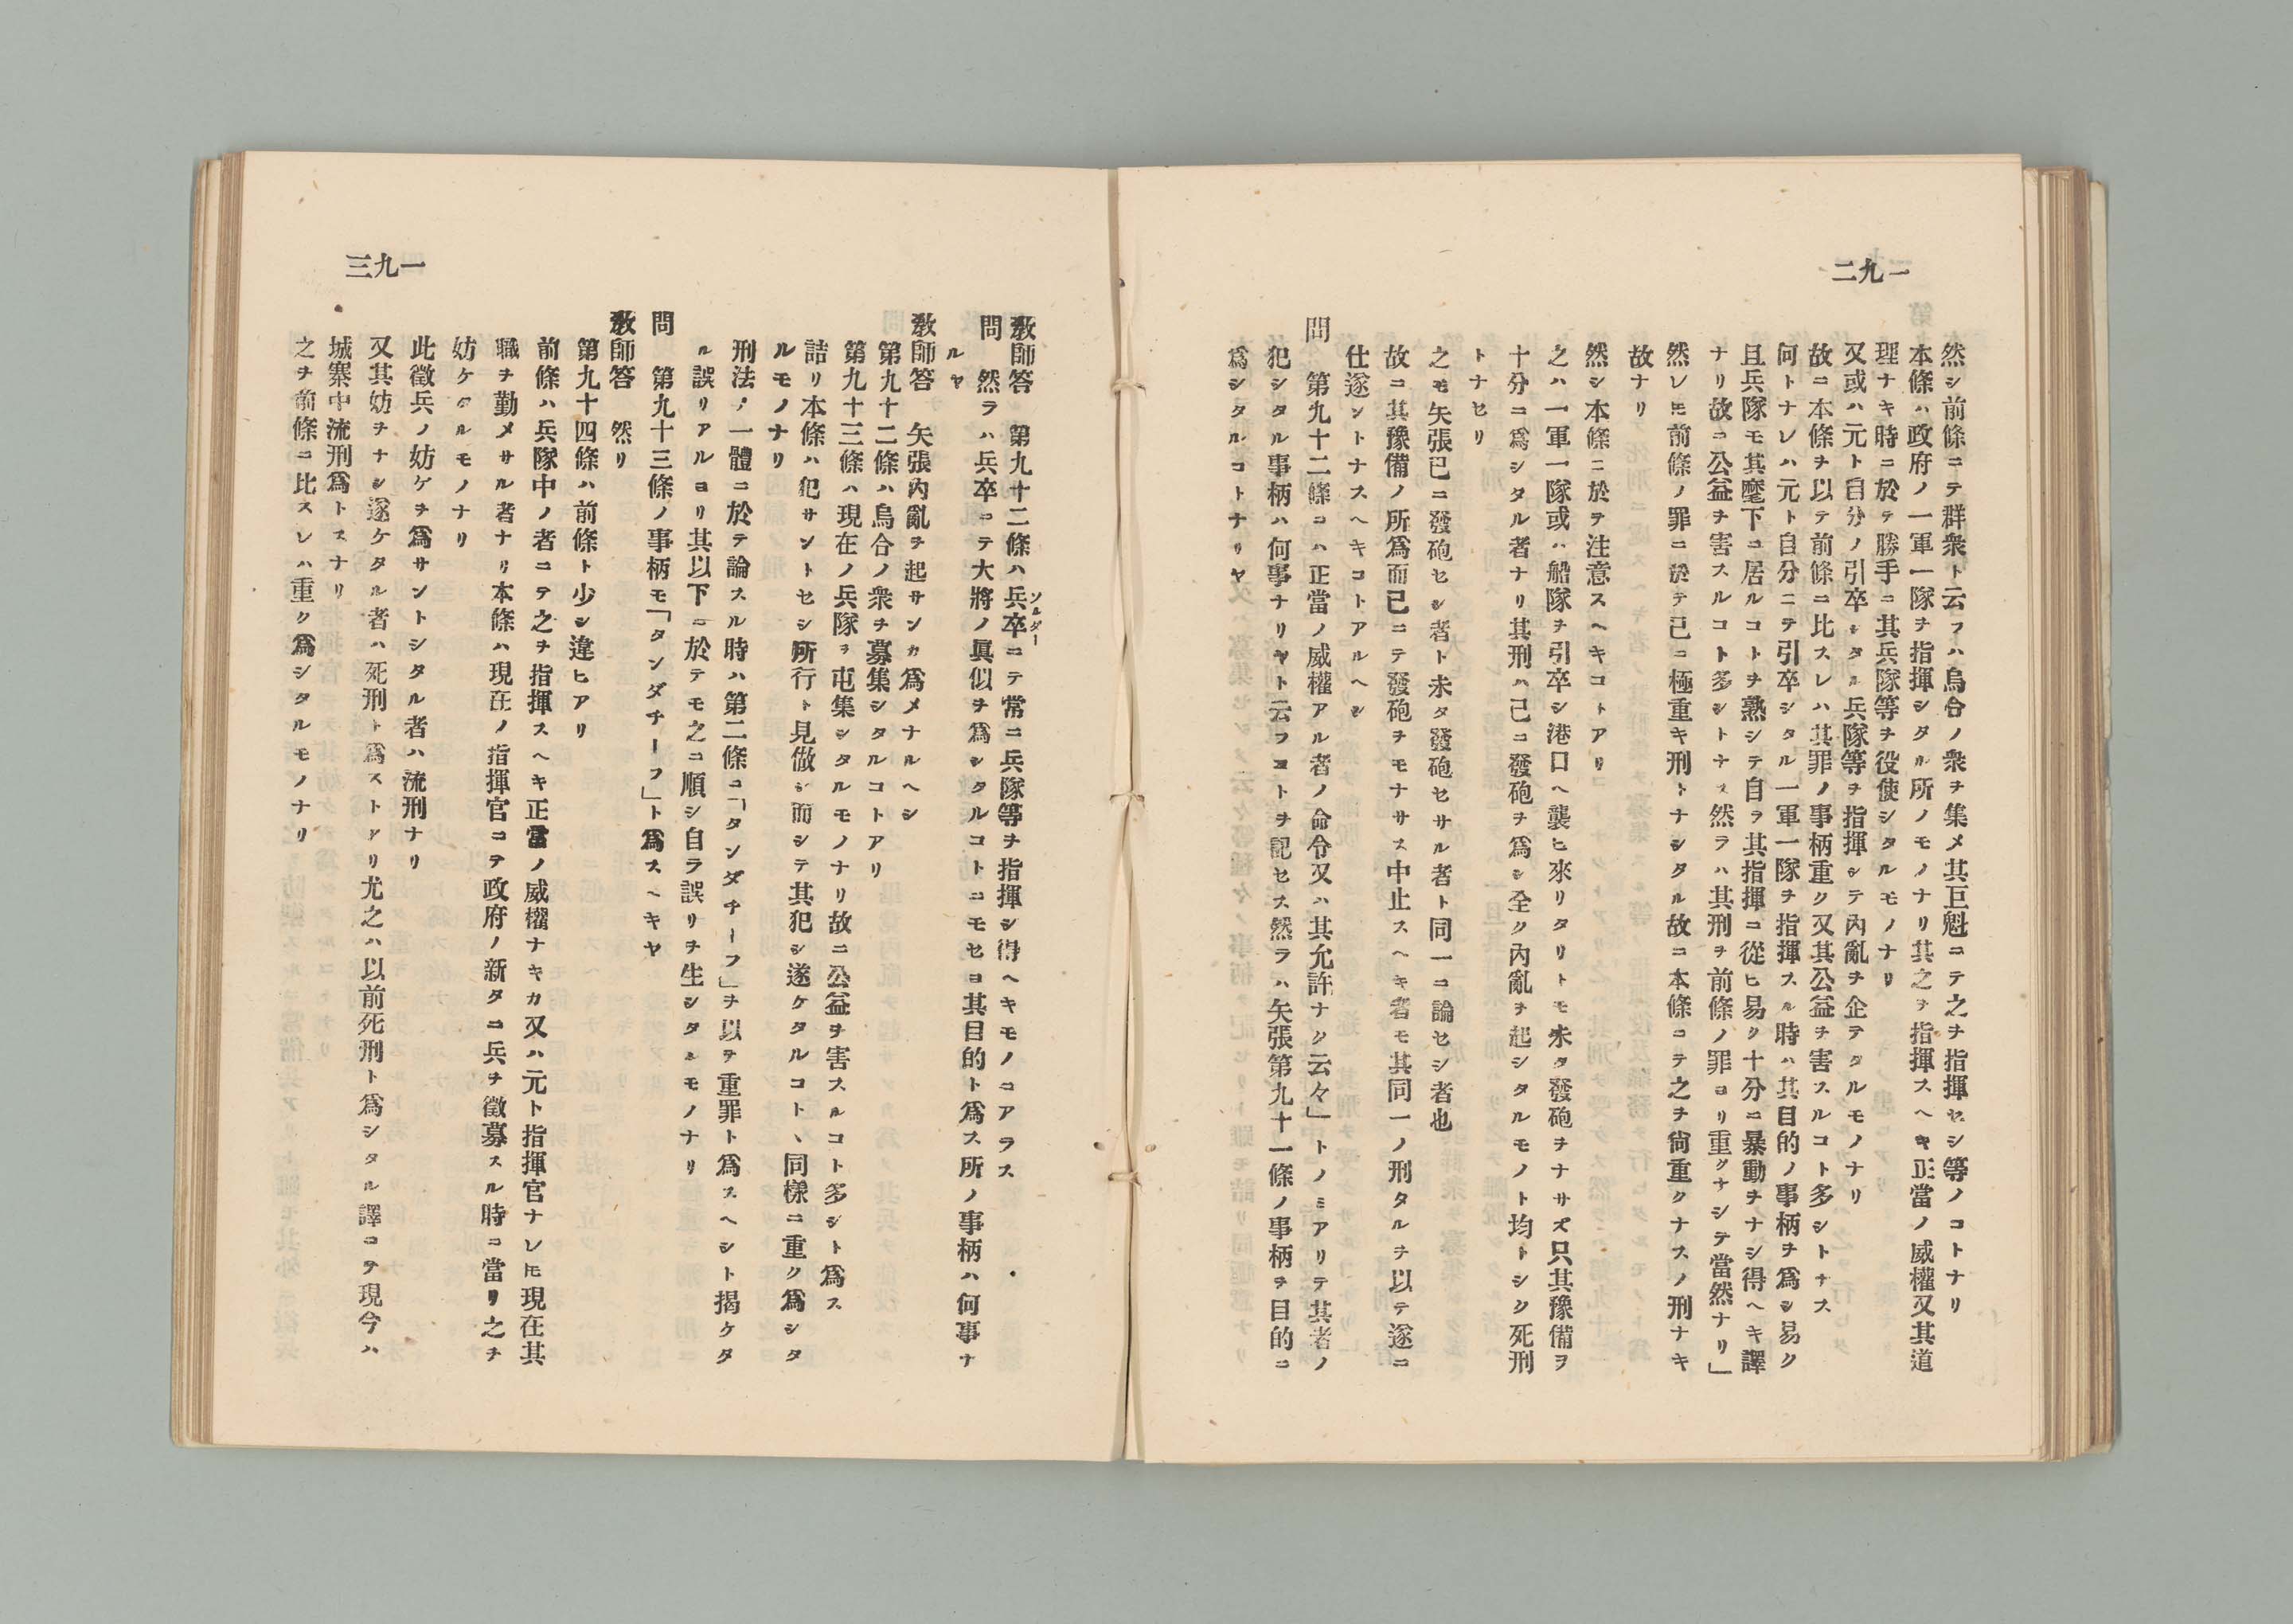 一九二
然シ前條ニテ群衆ト云フハ烏合ノ衆ヲ集メ其巨魁ニテ之ヲ指揮セシ等ノコトナリ
本條ハ政府ノ一軍一隊ヲ指揮シタル所ノモノナリ其之ヲ指揮スヘキ正當ノ威權又其道
理ナキ時ニ於テ勝手ニ其兵隊等ヲ役使シタルモノナリ
又或ハ元ト自分ノ引卒シタル兵隊等ヲ指揮シテ內亂ヲ企テタルモノナリ
故ニ本條ヲ以テ前條ニ比スレハ其罪ノ事柄重ク又其公益ヲ害スルコト多シトナス
何トナレハ元ト自分ニテ引卒シタル一軍一隊ヲ指揮スル時ハ其目的ノ事柄ヲ爲シ易ク
且兵隊モ其麾下ニ居ルコトヲ熟シテ自ラ其指揮ニ從ヒ易ク十分ニ暴動ヲナシ得ヘキ譯
ナリ故ニ公益ヲ害スルコト多シトナス然ラハ其刑ヲ前條ノ罪ヨリ重クナシテ當然ナリ」
然レ𪜈前條ノ罪ニ於テ已ニ極重キ刑トナシタル故ニ本條ニテ之ヲ尙重クナスノ刑ナキ
故ナリ
然シ本條ニ於テ注意スヘキコトアリ
之ハ一軍一隊或ハ船隊ヲ引卒シ港口ヘ襲ヒ來リタリトモ未タ發砲ヲナサズ只其豫備ヲ
十分ニ爲シタル者ナリ其刑ハ已ニ發砲ヲ爲シ全ク內亂ヲ起シタルモノト均トシク死刑
トナセリ
之モ矢張已ニ發砲セシ者ト未タ發砲セサル者ト同一ニ論セシ者也
故ニ其豫備ノ所爲而已ニテ發砲ヲモナサス中止スヘキ者モ其同一ノ刑タルヲ以テ遂ニ
仕遂ントナスヘキコトアルヘシ
問　第九十二條ニハ正當ノ威權アル者ノ命令又ハ其允許ナク云々」トノミアリテ其者ノ
犯シタル事柄ハ何事ナリヤト云フコトヲ記セス然ラハ矢張第九十一條ノ事柄ヲ目的ニ
爲シタルコトナリヤ
一九三
敎師答　第九十二條ハ兵卒ニテ常ニ兵隊等ヲ指揮シ得ヘキモノニアラス
ソルダー
問　然ラハ兵卒ニテ大將ノ眞似ヲ爲シタルコトニモセヨ其目的ト爲ス所ノ事柄ハ何事ナ
ルヤ
敎師答　矢張內亂ヲ起サンカ爲メナルヘシ
第九十二條ハ烏合ノ衆ヲ募集シタルコトアリ
第九十三條ハ現在ノ兵隊ヲ屯集シタルモノナリ故ニ公益ヲ害スルコト多シト爲ス
詰リ本條ハ犯サントセシ所行ト見傚シ而シテ其犯シ遂ケタルコト、同樣ニ重ク爲シタ
ルモノナリ
刑法ノ一體ニ於テ論スル時ハ第二條ニ「タンダチーフ」ヲ以テ重罪ト爲スヘシト揭ケタ
ル誤リアルヨリ其以下ニ於テモ之ニ順シ自ラ誤リヲ生シタルモノナリ
問　第九十三條ノ事柄モ「タンダチーフ」ト爲スヘキヤ
敎師答　然リ
第九十四條ハ前條ト少シ違ヒアリ
前條ハ兵隊中ノ者ニテ之ヲ指揮スヘキ正當ノ威權ナキカ又ハ元ト指揮官ナレ𪜈現在其
職ヲ勤メサル者ナリ本條ハ現在ノ指揮官ニテ政府ノ新タニ兵ヲ徵募スル時ニ當リ之ヲ
妨ケタルモノナリ
此徵兵ノ妨ケヲ爲サントシタル者ハ流刑ナリ
又其妨ヲナシ遂ケタル者ハ死刑ト爲ストアリ尤之ハ以前死刑ト爲シタル譯ニテ現今ハ
城寨中流刑爲トスナリ
之ヲ前條ニ比スレハ重ク爲シタルモノナリ